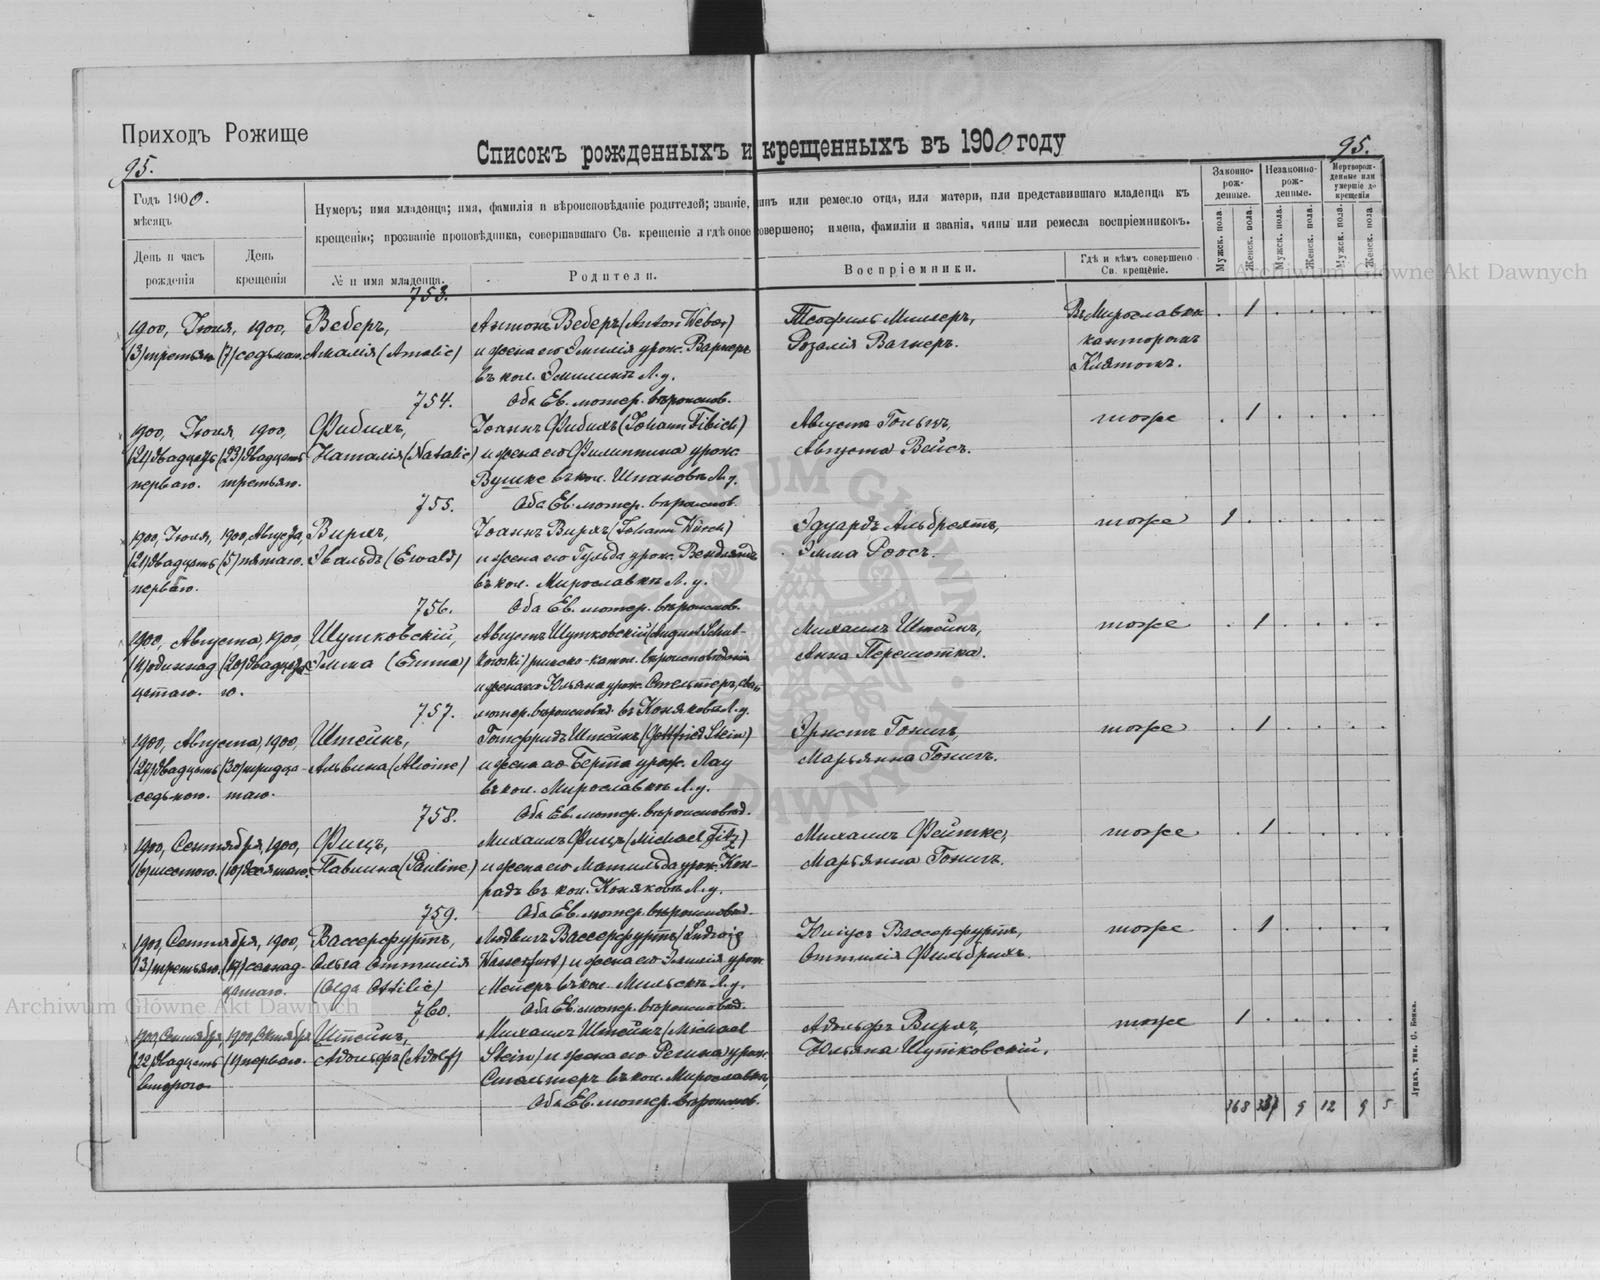 Приходъ Рожище
Списокъ рожденныхъ и крещенныхъ въ 1900 году
95.
95.
Годъ 1900.
мѣсяцъ
Нумеръ; имя младенца; имя, фамилія и вѣроисповѣданіе родителей; званіе, чинъ или ремесло отца, или матери, или представившаго младенца къ
крещенію; прозваніе проповѣдника, совершавшаго Св. крещеніе и гдѣ оное совершено; имена, фамиліи и званія, чины или ремесла воспріемниковъ.
Законно-рож-денные.
Незаконно-рож-денные.
Мертворож-денные или умершіе до крещенія
День и часъ рожденія
День крещенія
№ и имя младенца.
Родители.
Воспріемники.
Гдѣ и кѣмъ совершено Св. крещеніе.
Мужск. пола.
Женск. пола.
Мужск. пола.
Женск. пола.
Мужск. пола.
Женск. пола.
753.
1900, Іюня, 1900, Веберъ, Антонъ Веберъ (Anton Weber) Теофиль Миллеръ, Въ Мирославкѣ . 1 . . . .
(3) третьяго (7) седьмаго. Амалія (Amalie) и жена его Эмилія урож. Варнеръ Розалія Вагнеръ. канторомъ
въ кол. Эмилинъ Л. у.
Оба Ев. лютер. вѣроисповѣд.
754.
1900, Іюля, 1900, Фибихъ, Іоаннъ Фибихъ (Johann Fibich) Августъ тоже . 1 . . . .
(21) двадцать (23) двадцать Наталія (Natalie) и жена его Филиппина урож. Августа Вейсъ.
перваго. третьяго. въ кол. Л. у.
Оба Ев. лютер. вѣроисповѣд.
755.
1900, Іюля, 1900, Августа, Вирхъ, Іоаннъ Вирхъ (Johann Würch) Эдуардъ Альбрехтъ, тоже 1 . . . . .
(21) двадцать (5) пятаго. Эвальдъ (Ewald) и жена его Гульда урож. Эмма Роосъ.
перваго. въ кол. Мирославкѣ Л. у.
Оба Ев. лютер. вѣроисповѣд.
756.
1900, Августа, 1900, Шутковскій, Августъ Шутковскій (August Schut- Михаилъ Штейнъ, тоже . 1 . . . .
(11) одиннад (20) двадцата Эмма (Emma) kowski) римско-катол. вѣроисповѣданія Анна Перешотка.
цатаго. го. и жена его Юльяна урож. Стельтеръ, еван.
лютер. вѣроисповѣд. въ Коняковѣ Л. у.
757.
1900, Августа, 1900, Штейнъ, Готфридъ Штейнъ (Gottfried Stein) Эрнстъ Гоницъ, тоже . 1 . . . .
(27) двадцать (30) тридца- Альвина (Alwine) и жена его Берта урож. Лау Марьянна Гоницъ.
седьмого. таго. въ кол. Мирославкѣ Л. у.
Оба Ев. лютер. вѣроисповѣд.
758.
1900, Сентября, 1900, Фицъ, Михаилъ Фицъ (Michael Fitz) Михаилъ Фейтке, тоже . 1 . . . .
(6) шестого. (10) десятаго. Павлина (Pauline) и жена его Матильда урож. Кон- Марьянна Гоницъ.
радъ въ кол. Коняковѣ Л. у.
Оба Ев. лютер. вѣроисповѣд.
759.
1900, Сентября, 1900, Вассерфуртъ, Людвигъ Вассерфуртъ (Ludwig Юліусъ Вассерфуртъ, тоже . 1 . . . .
(3) третьяго. (17) семнад- Ольга Оттилія Wasserfurt) и жена его Эмилія урож. Оттилія Фильбрихъ.
цатаго. (Olga Ottilie) Мейеръ въ кол. Мильскѣ Л. у.
Оба Ев. лютер. вѣроисповѣд.
760.
1900, Сентября, 1900, Октября Штейнъ, Михаилъ Штейнъ (Michael Адольфъ Вирхъ, тоже 1 . . . . .
(22) двадцать (1) перваго. Адольфъ (Adolf) Stein) и жена его Регина урож. Юльяна Шутковскій.
второго. Стельтеръ въ кол. Мирославкѣ,
Оба Ев. лютер. вѣроисповѣд.
368 9 12 9 5
Луцкъ, тип. С. Бонка.
Archiwum Główne Akt Dawnych
Archiwum Główne Akt Dawnych
ARCHIWUM GŁÓWNE AKT DAWNYCH